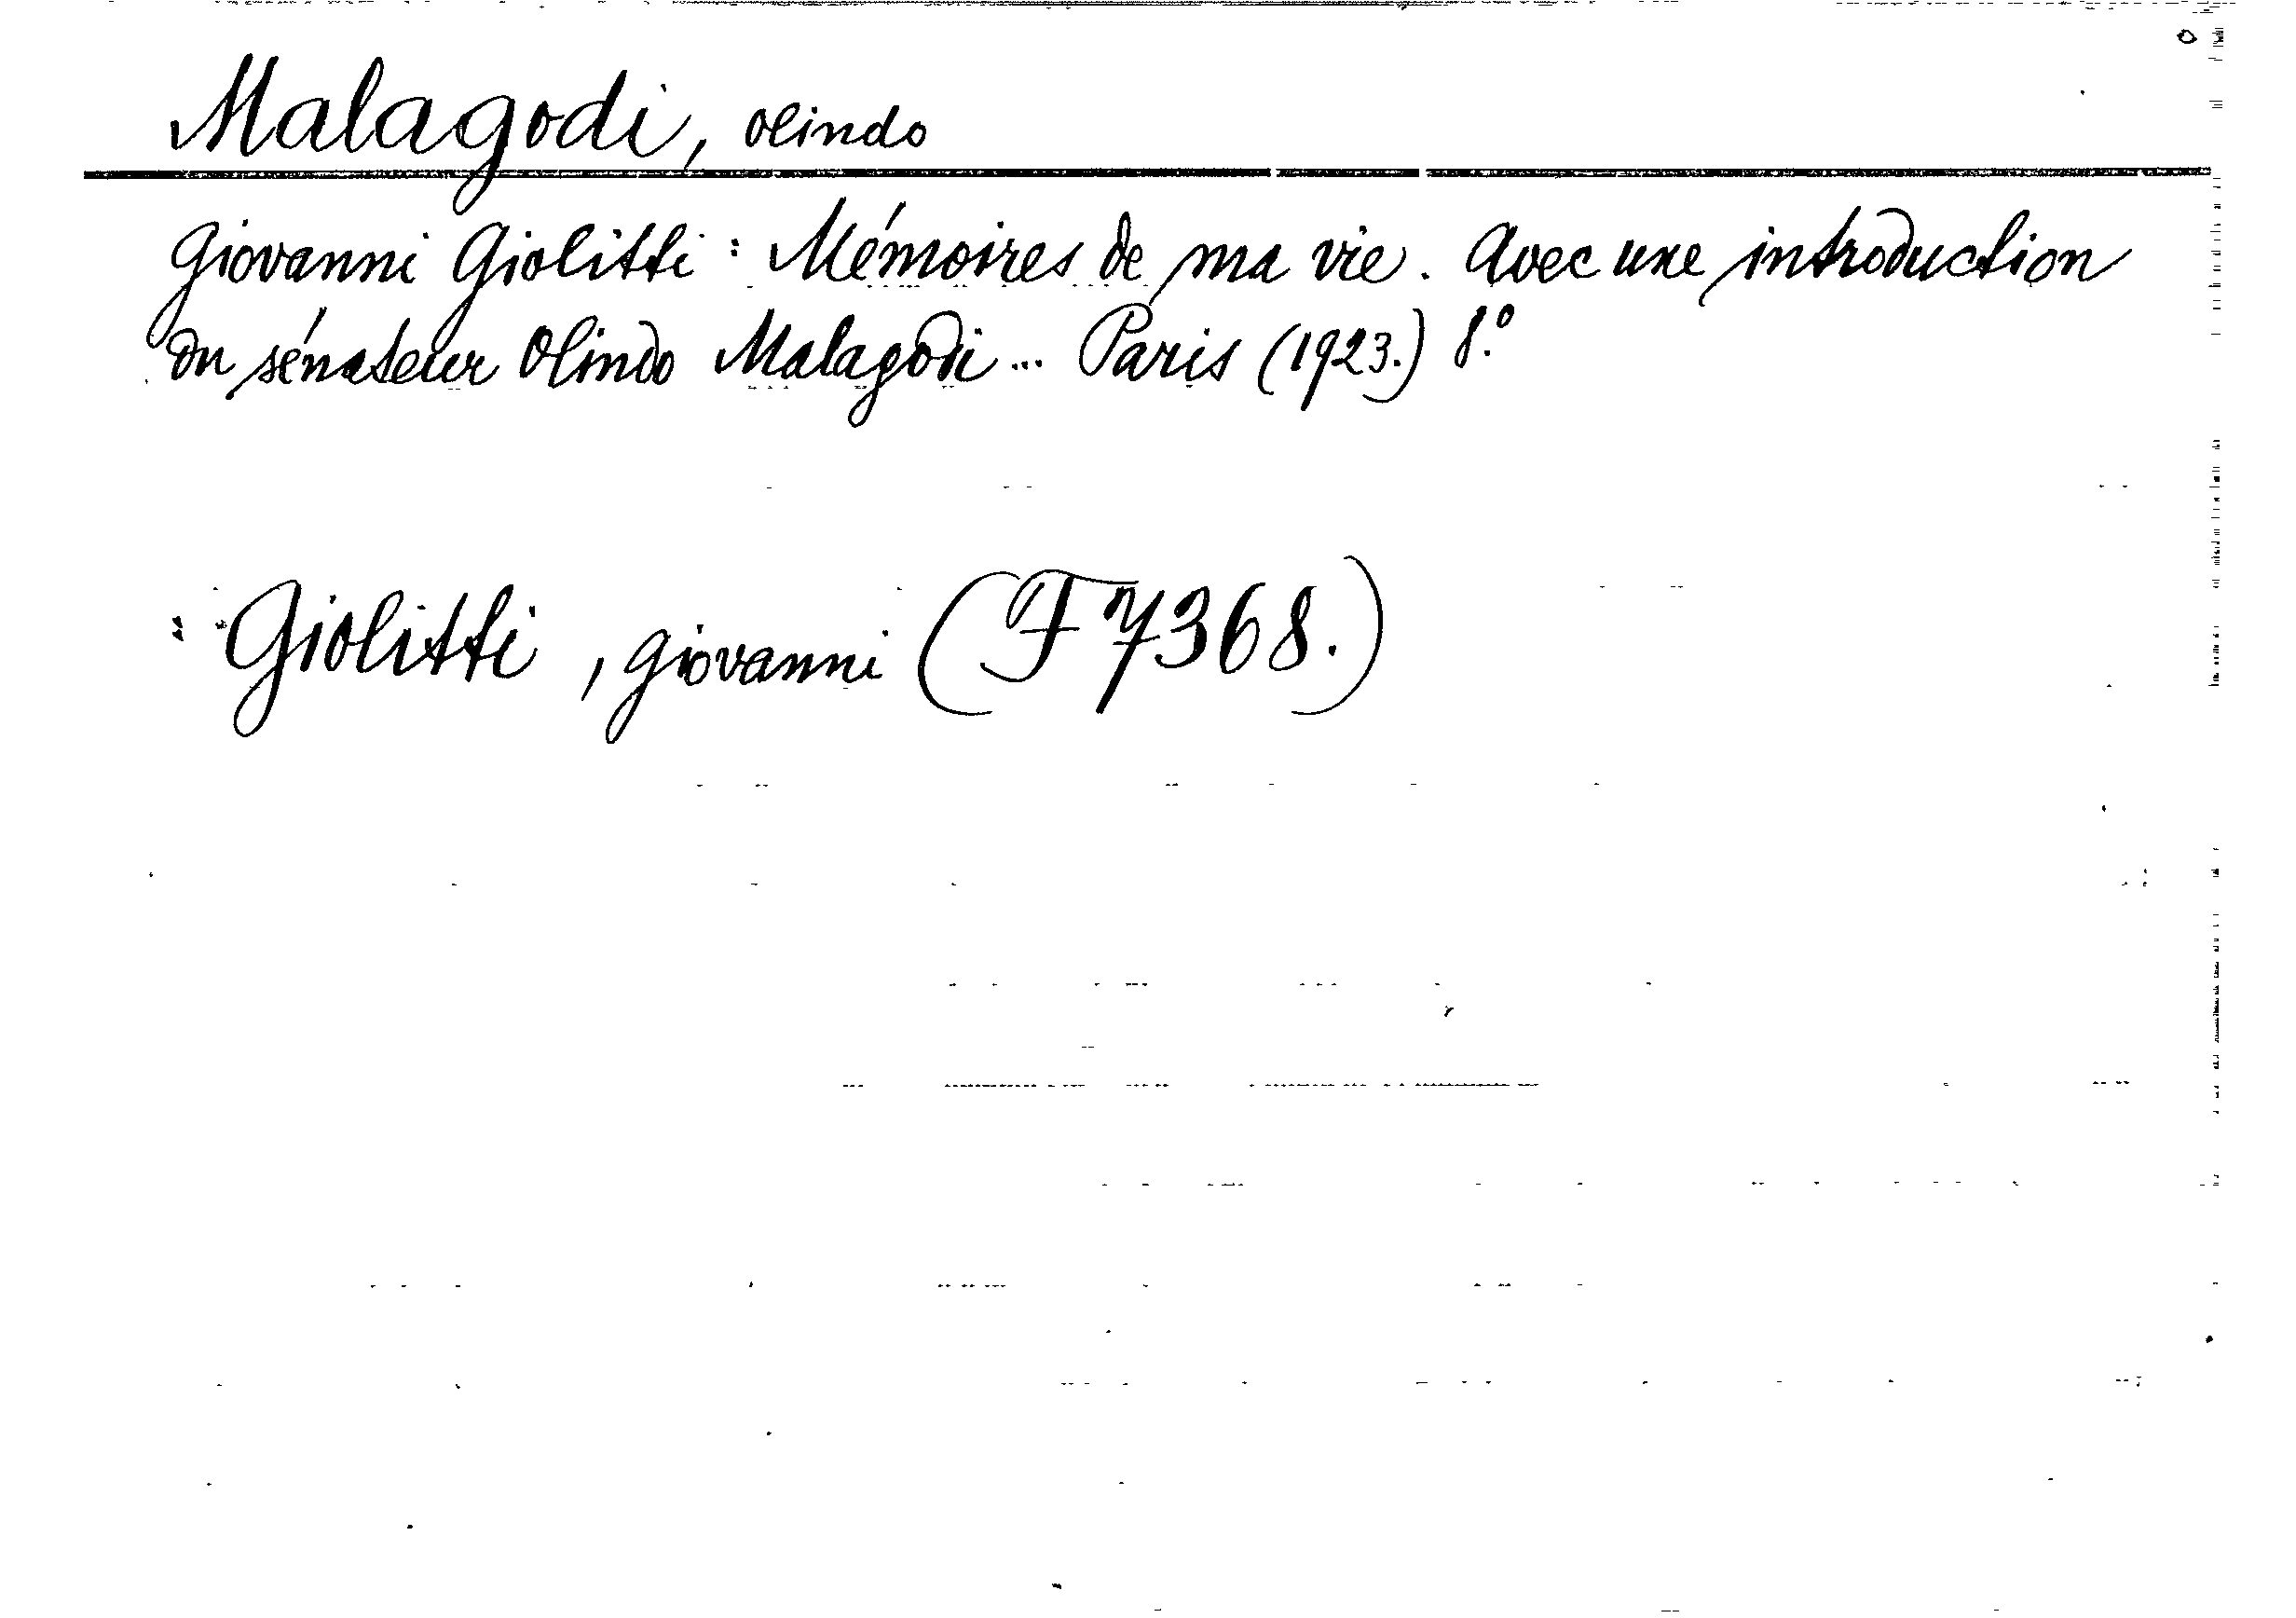 Malagodi, Olindo
Giovanni Giolitti: Mémoires de ma vie. Avec une introduction
du sénateur Olindo Malagodi... Paris (1923.) 8.°
: Giolitti, Giovanni (F 7368.)